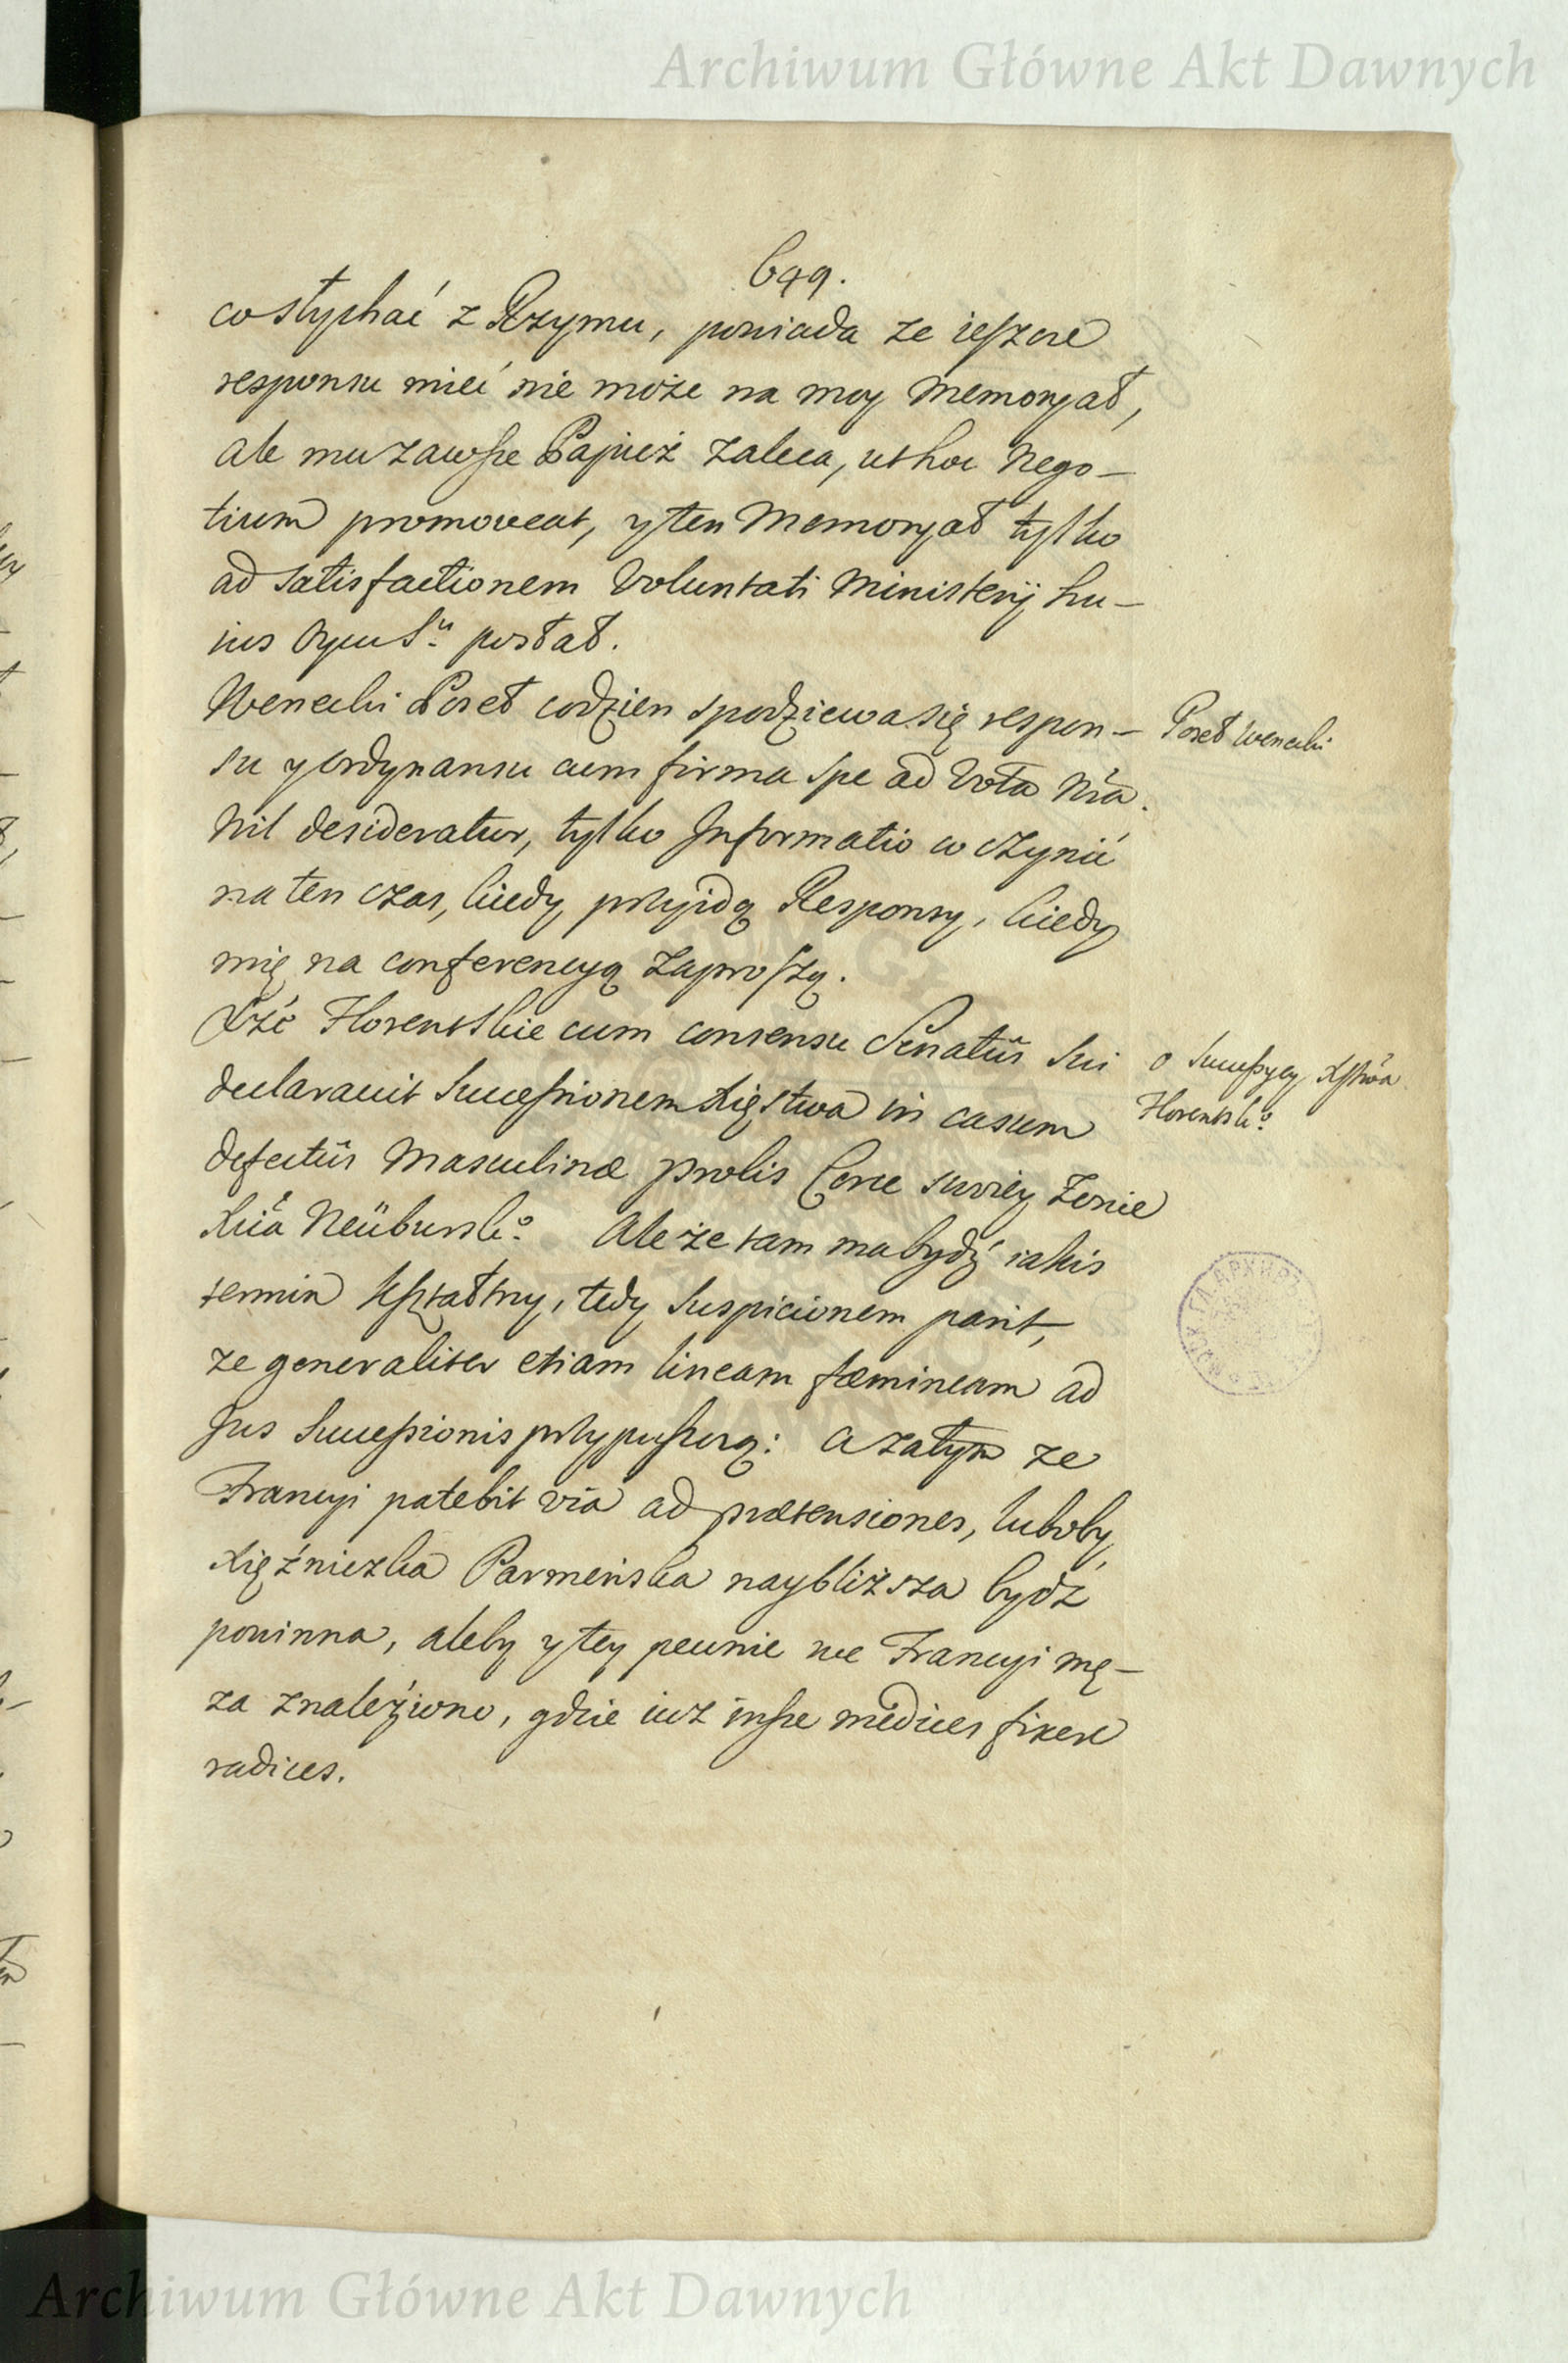 Archiwum Główne Akt Dawnych
649.
co słychać z Rzymu, powiada ze ieszcze
responsu mieć nie może na moy Memoryał,
ale mu zawsze Papież zaleca, ut hoc Nego-
tium promoveat, y ten Memoryał tylko
ad satisfactionem Voluntati Ministerij hu-
ius posłał.
Wenecki Poseł codzien spodziewa się respon-
su y ordynansu cum firma spe ad Vota Nra.
Nil desideratur, tylko Informatio co czynić
na ten czas, kiedy przyidą Responsy, kiedy
mię na conferencyą zaproszą.
Xżę Florentskie cum consensu Senatus sui
declaravit Successionem Xięstwa in casum
defectus Masculinæ prolis Corce swoiey Zonie
Xcia Neüburskᵒ. Ale że tam ma bydź iakis
termin kształtny, tedy suspicionem parit,
ze generaliter etiam lineam fæmineam ad
Jus Successionis przypuszczą: a zatym ze
Francyi patebit via ad prætensiones, luboby
Xiężniczka Parmeńska naybliższa bydź
powinna, aleby y tey pewnie we Francyi mę-
za znaleziono, gdzie iuz insze Medices fixere
radices.
Poseł Wenecki
o Successyey Xstwa
Florentskᵒ.
Archiwum Główne Akt Dawnych